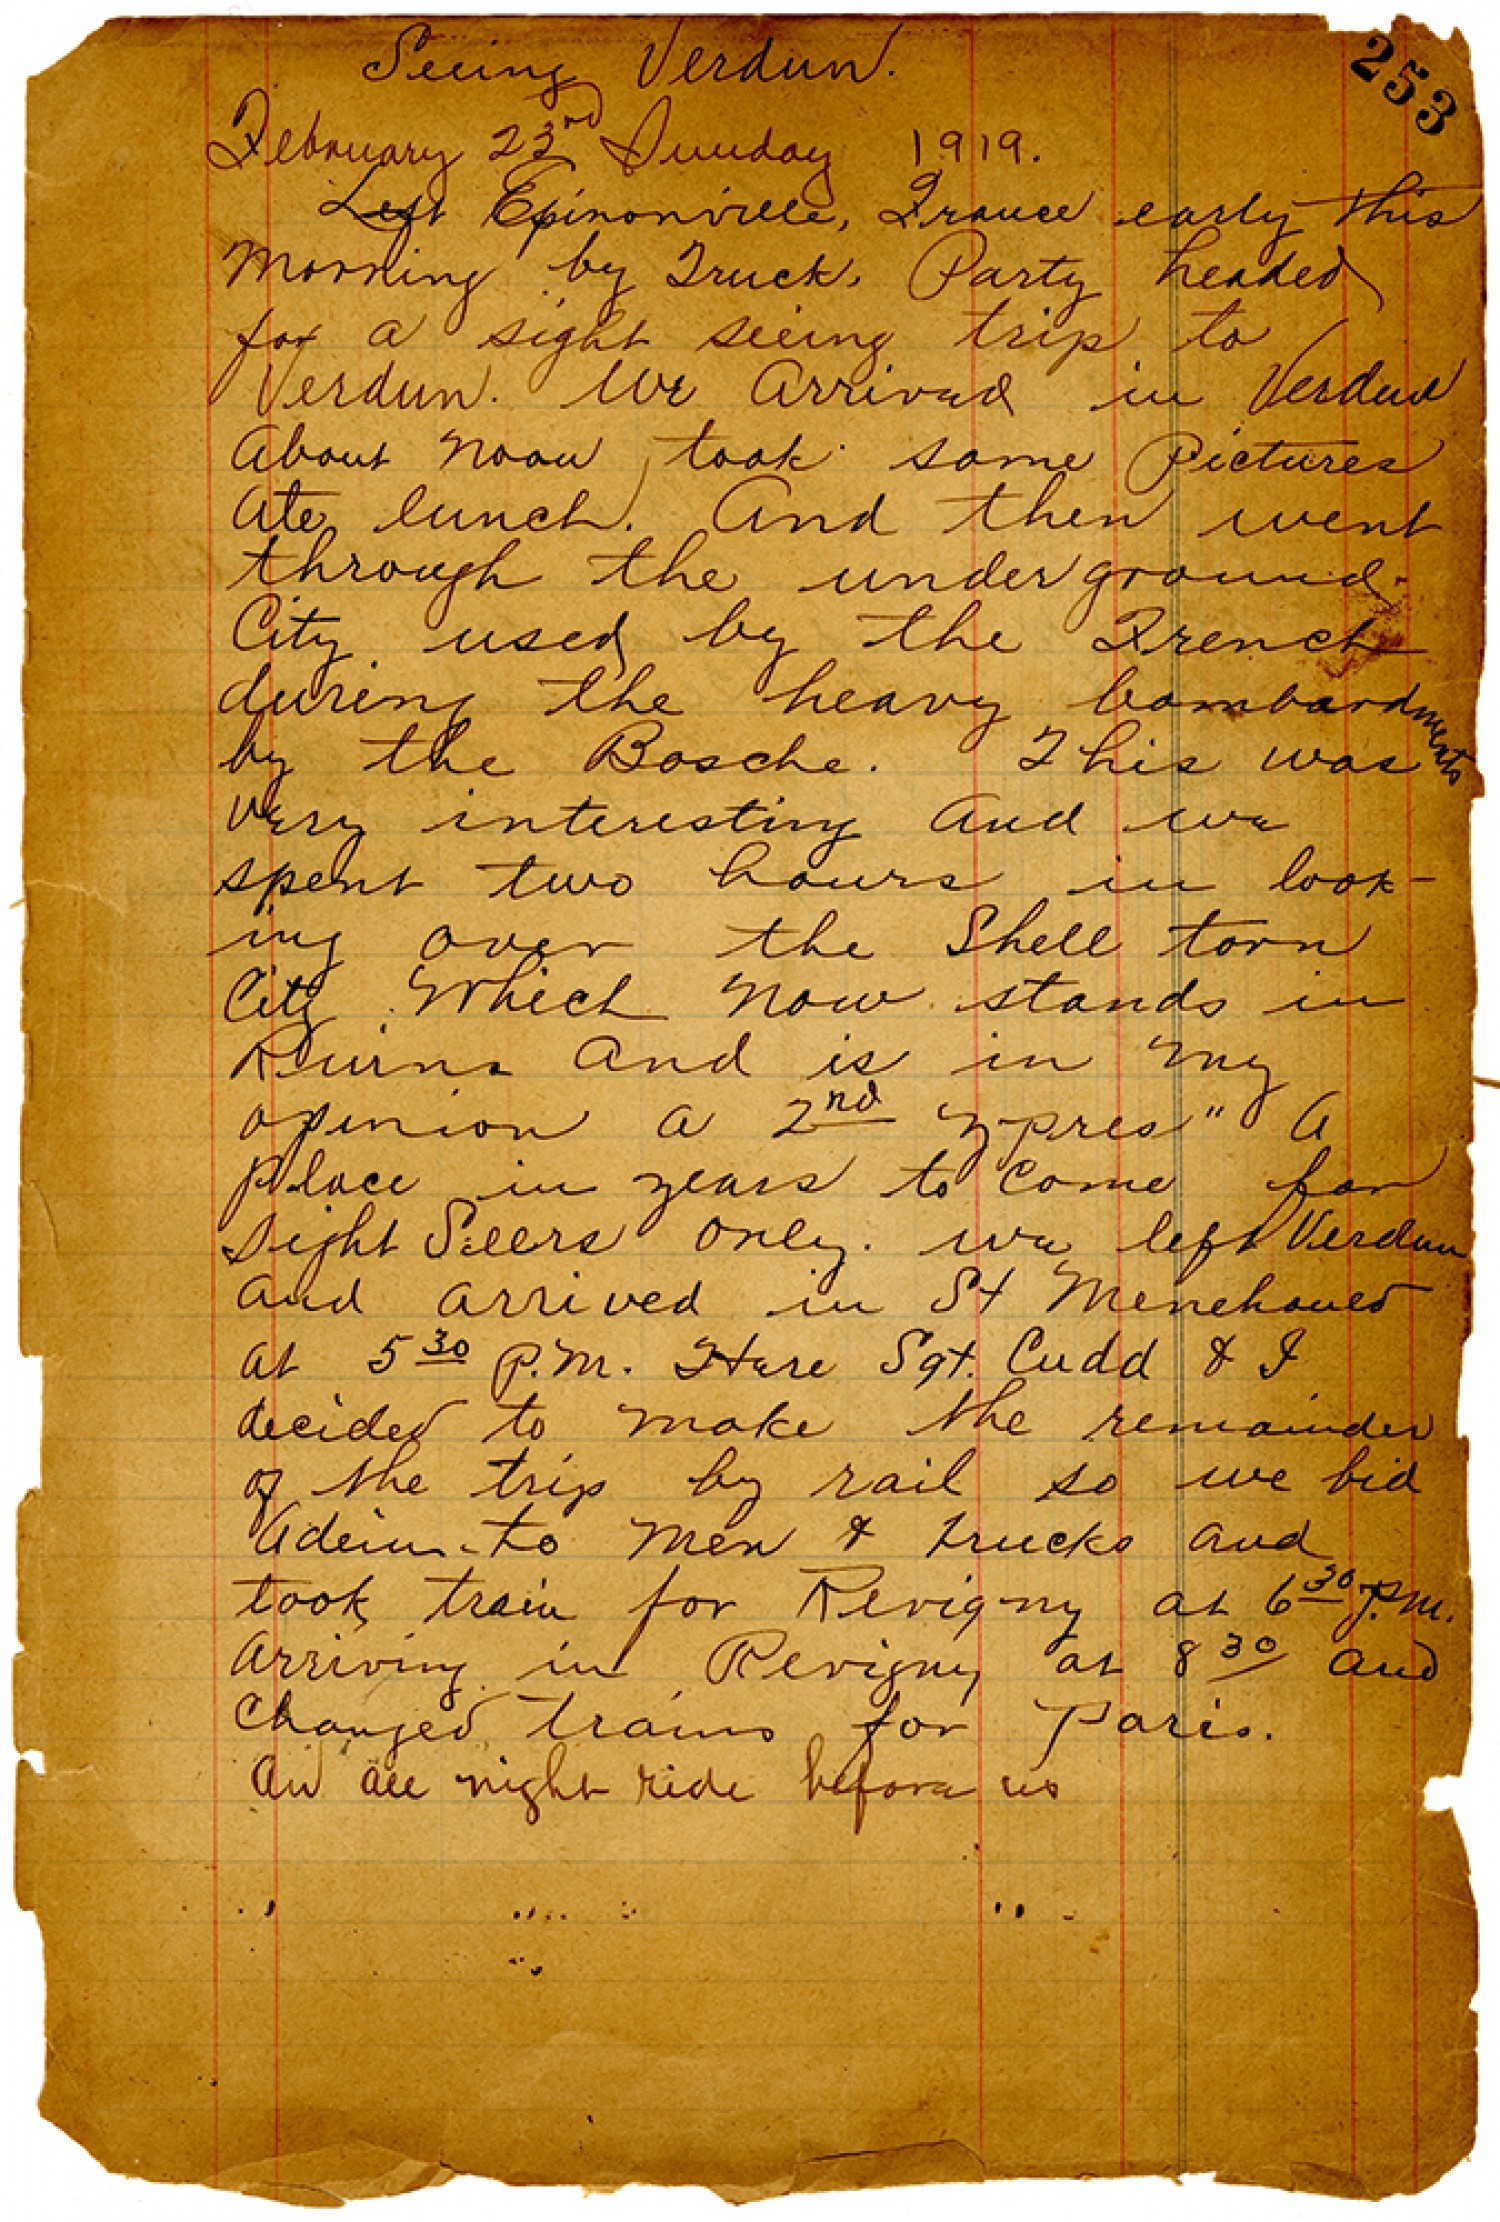 253
Seeing Verdun.
February 23rd Sunday 1919.
Left Epinonville, France early this
morning by Truck. Party headed
for a sight seeing trip to
Verdun. We Arrived in Verdun
About Noon, took some Pictures
Ate lunch. And then went
through the underground
City used by the French
during the heavy bombardments
by the Bosche. This was
very interesting and we
spent two hours in look-
ing over the Shell torn
City Which Now stands in
Ruins And is in my
opinion a 2nd Ypres" A
place in years to come for
sight Seers only. we left Verdun
and arrived in St Menehoued
at 5 30 P.M. Here Sgt. Cudd & I
decided to make the remainder
of the trip by rail so we bid
Adeiu to Men & trucks and
took train for Revigny at 6 30 P.M.
Arriving in Revigny at 8 30 and
Changed trains for Paris.
An all night ride before us